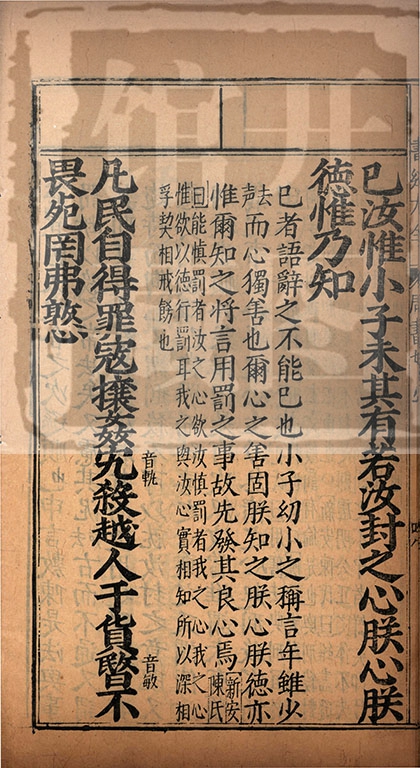 已汝惟小子未其有若汝封之心朕心朕
德惟乃知
已者語辭之不能已也小子幼小之稱言年雖少
去声而心獨善也爾心之善固朕知之朕心朕德亦
惟爾知之將言用罰之事故先發其良心焉新安陳氏
曰能慎罰者汝之心欲汝慎罰者我之心我之心
惟欲以德行罰耳我之與汝心實相知所以深相
孚契相戒飭也
凡民自得罪寇攘姦宄音軌殺越人于貨暋音敏不
畏死罔弗憝